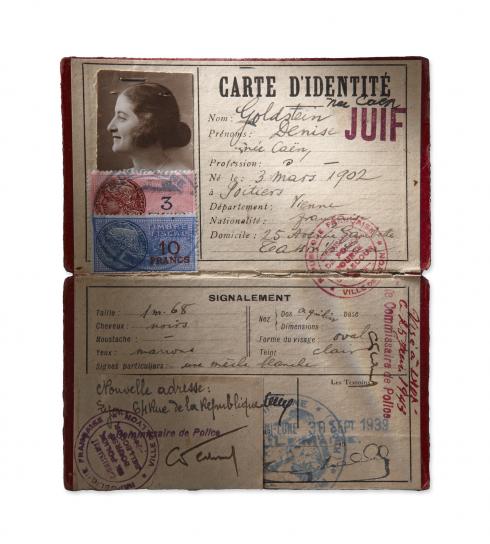 CARTE D'IDENTITÉ
née Caën
Nom: Goldstein
JUIF
Prénoms: Denise
née Caën
Profession:
Né le: 3 mars 1902
à Poitiers
Département: Vienne
Nationalité: française
Domicile: 25 Avenue
3
TIMBRE
FISCAL
10
FRANCS
SIGNALEMENT
Taille: 1m 68
Cheveux: noirs
Moustache:
Yeux: marrons
Signes particuliers: une mèche blanche
Nez Dos aquilin Base
Dimensions
Forme du visage oval
Teint clair
le Commissaire de Police
Les Témoins
Nouvelle adresse:
Lyon 64 Rue de la République
Commissaire de Police
SEPT 1939